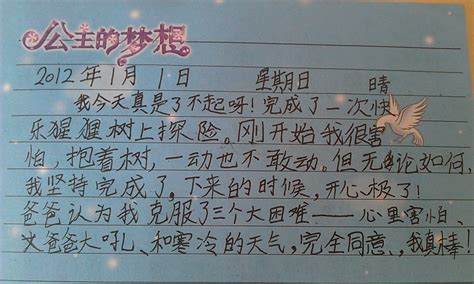 公主的梦想
2012年1月1日 星期日 晴
我今天真是了不起呀!完成了一次快
乐猩猩树上探险。刚开始我很害
怕,抱着树,一动也不敢动。但无论如何,
我坚持完成了。下来的时候,开心极了!
爸爸认为我克服了三个大困难——心里害怕、
爸爸大吼、和寒冷的天气,完全同意,我真棒!